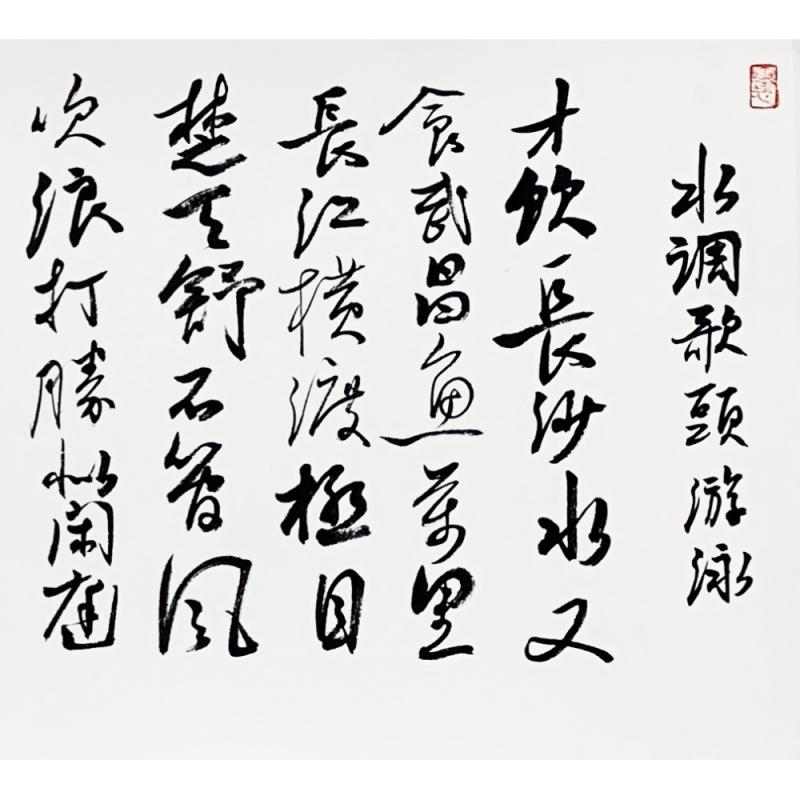 水調歌頭游泳
才飲長沙水又
食武昌魚萬里
長江橫渡極目
楚天舒不管風
吹浪打勝似閑庭